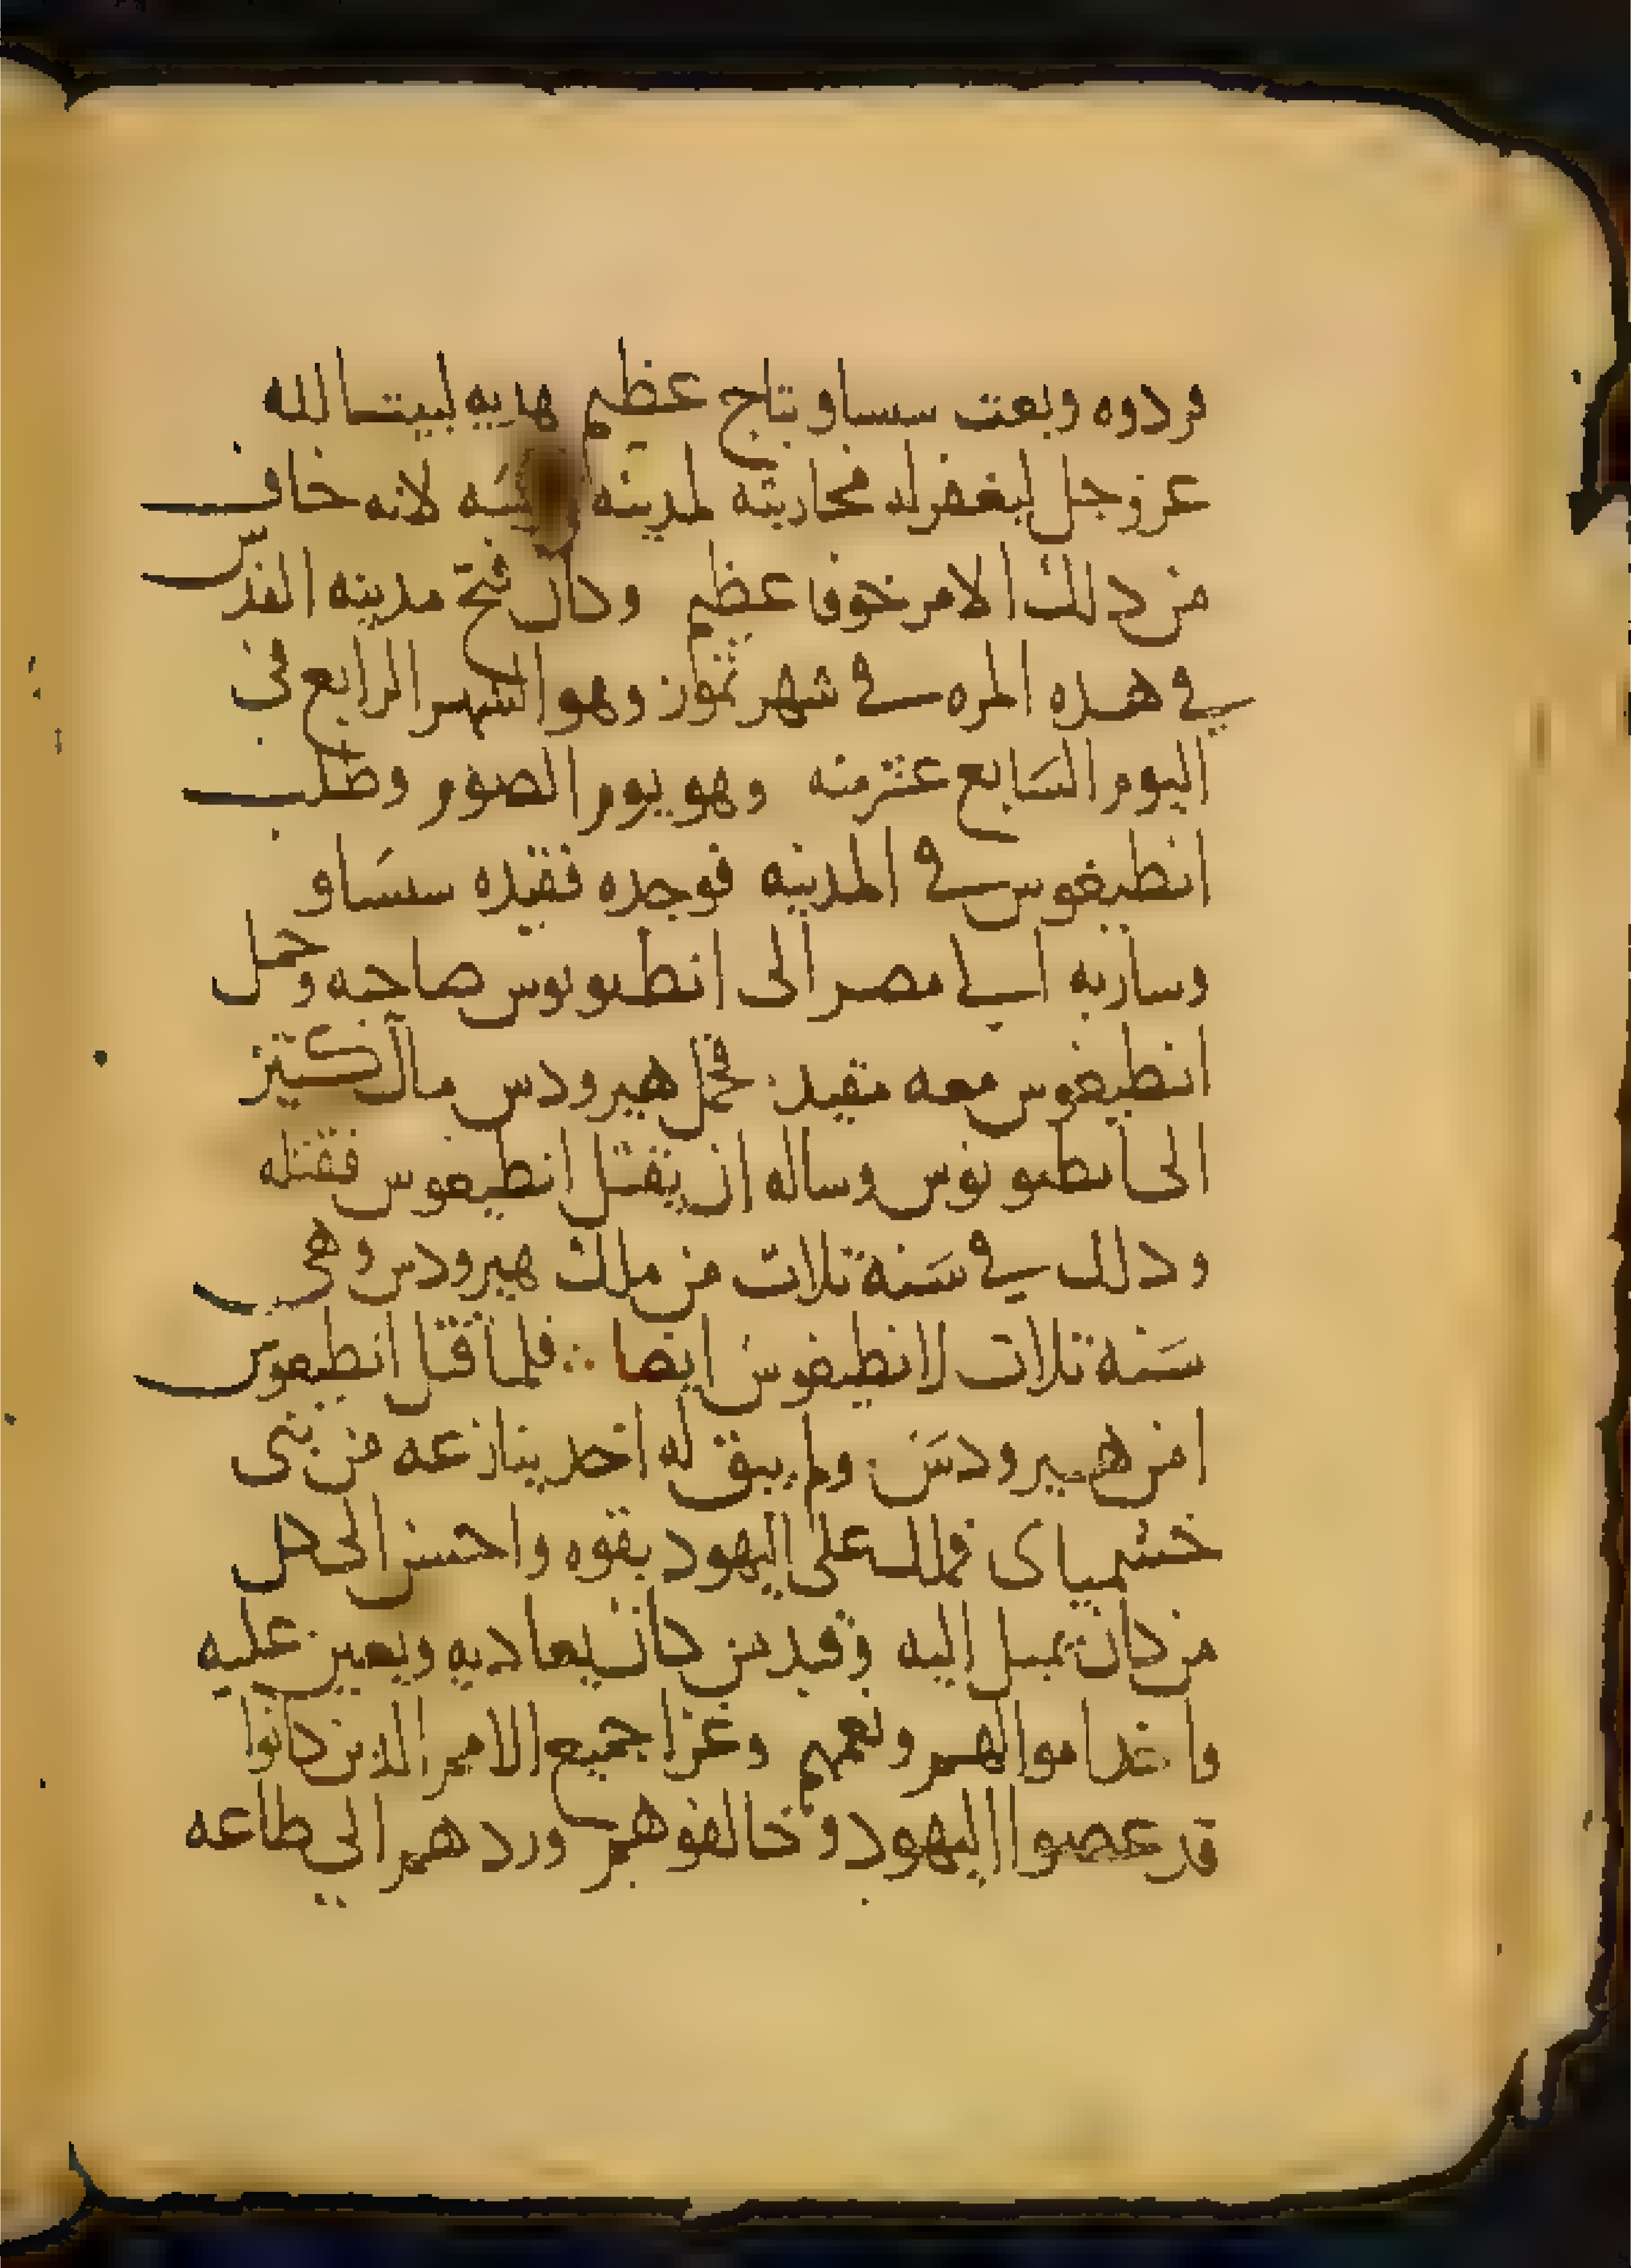 فردوه وبعت سساو بتاج عظيم هديه لبيت الله
عز وجل ليغفر له محاربته لمدينه لانه خاف
من دلك الامر خوفا عظيم وكان فتح مدينه القدس
في هده المره في شهر تموز وهو الشهر الرابع في
اليوم السابع عشر منه وهو يوم الصوم وطلب
انطيغوس في المدينه فوجده فقيده سساو
وسار به الي مصر الى انطيونوس صاحبه وحمل
انطيغوس معه مقيد فحمل هيرودس مال كتير
الى انطيونوس وساله ان يقتل انطيغوس فقتله
ودلك في سنة تلات من ملك هيرودس وهي
سنة تلات لانطيغوس ايضا ∴ فلما قتل انطيغوس
امن هيرودس ولم يبق له احد ينازعه من بني
خشمياي فملك على اليهود بقوه واحسن الى كل
من كان يميل اليه وقيد من كان يعاديه ويعين عليه
واخد اموالهم ونعمهم وغزا جميع الامم الدين كانوا
قد عصوا اليهود وخالفوهم وردهم الي طاعه